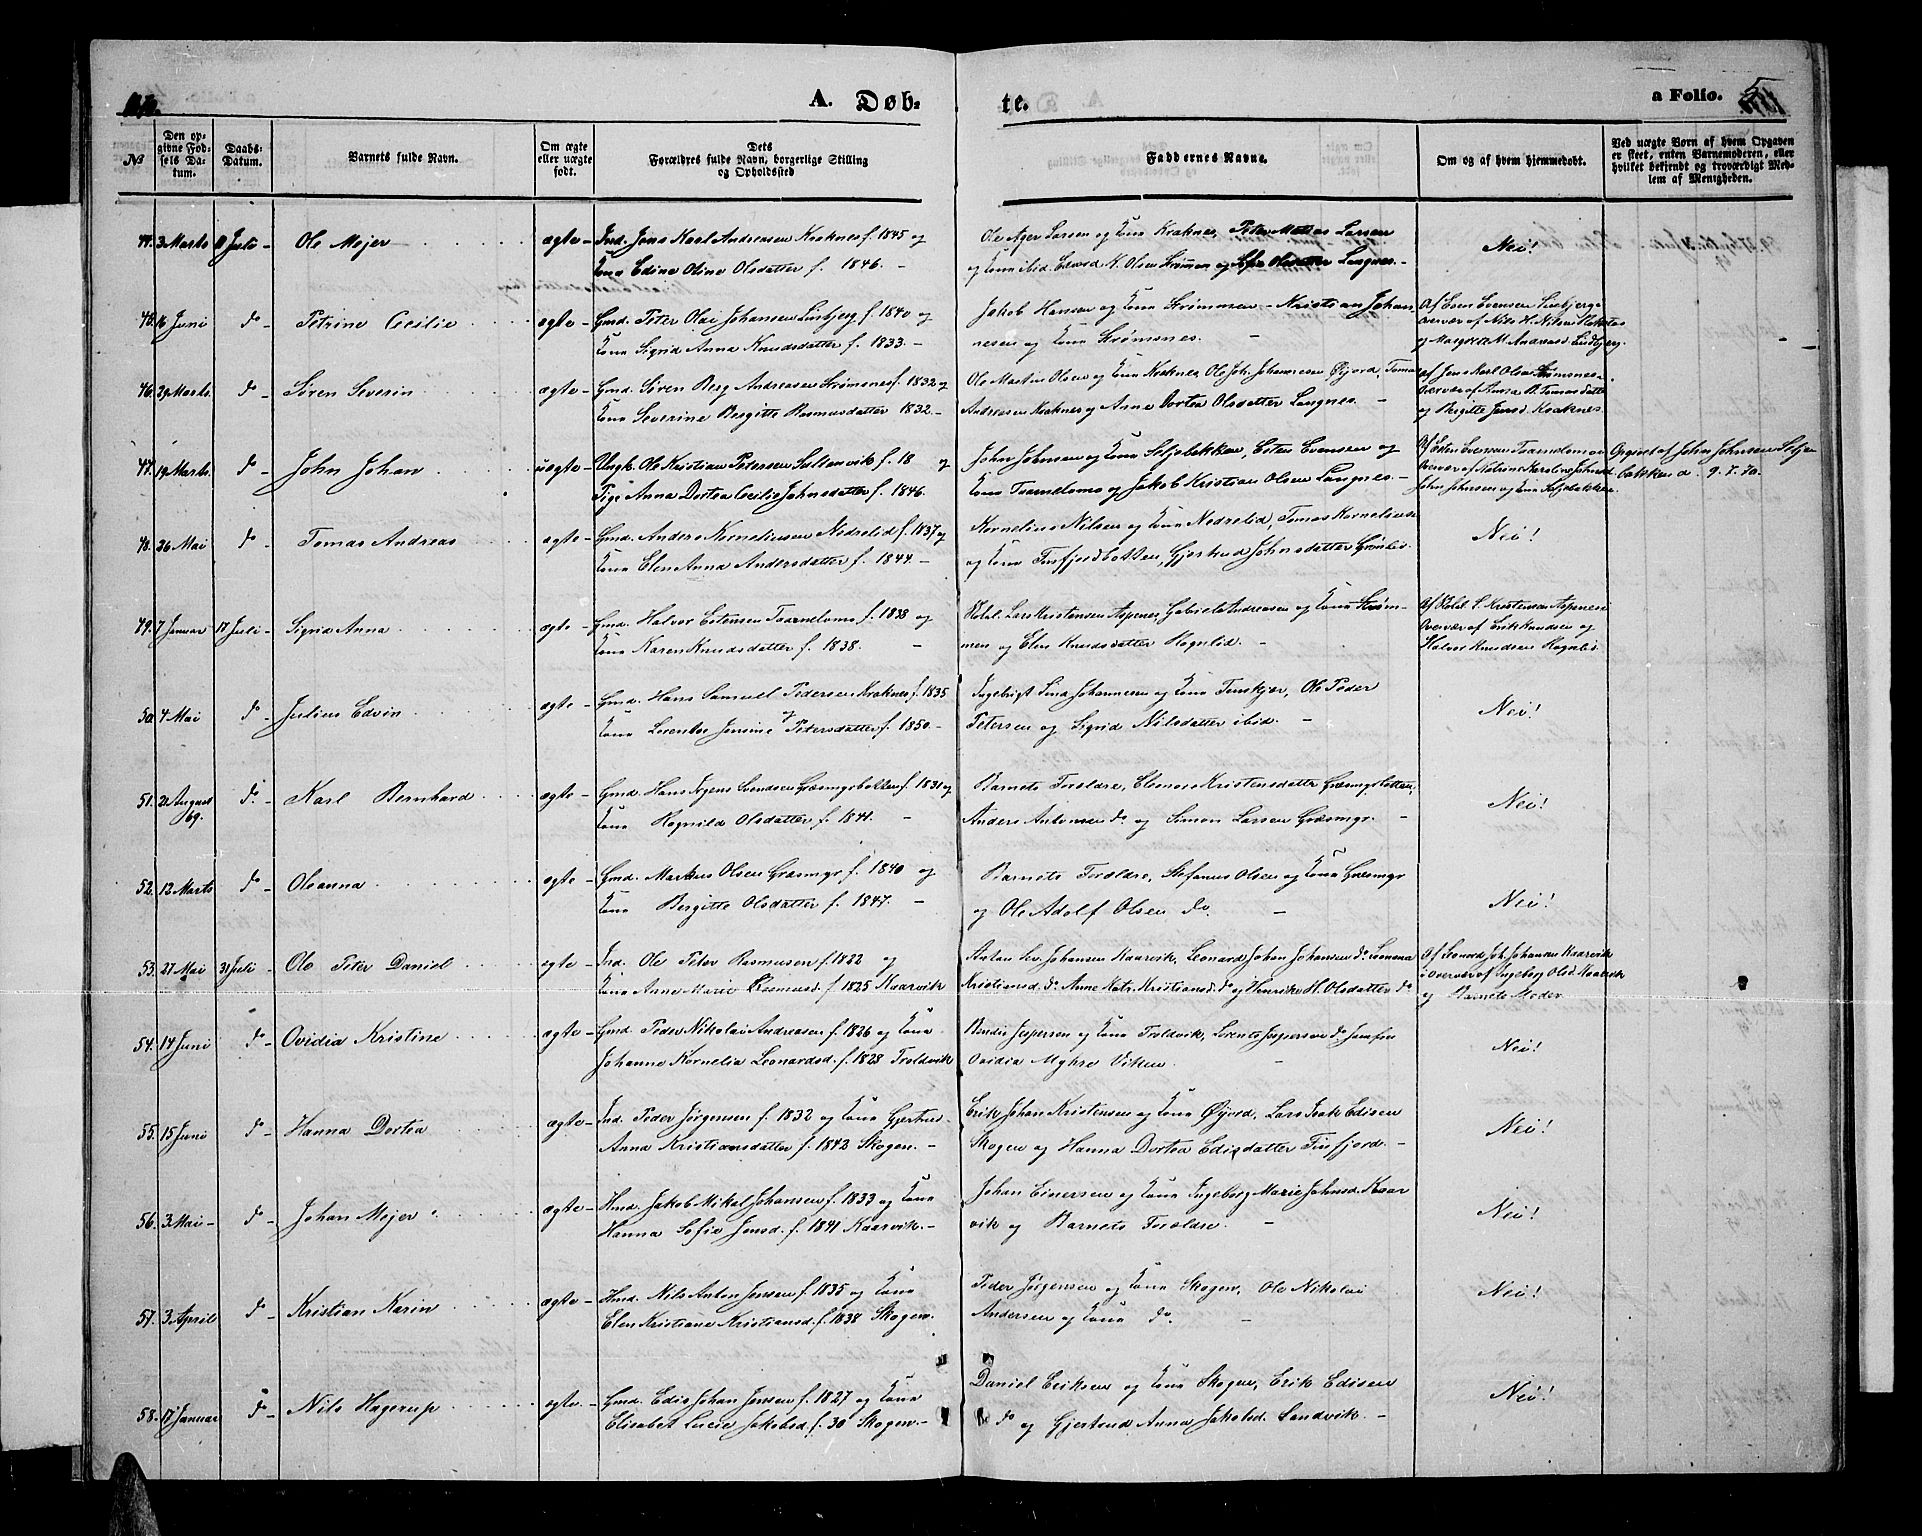 A. Døb-
te.
a Folio. 5
No
Den opgivne Fødsels Datum.
Daabs-Datum.
Barnets fulde Navn.
Om ægte eller uægte født.
Dets Forældres fulde Navn, borgerlige Stilling og Opholdssted
Faddernes Navne.
Om og af hvem hjemmedøbt.
Ved uægte Børn af hvem Opgaven er skeet, enten Barnemoderen, eller hvilket bekjendt og troværdigt Medlem af Menigheden.
44. 3 Marts Juli - Ole Mejer ægte - Ind. Jens Karl Andreasen Kraknes f. 1845 og
Kona Edine Oline Olsdatter f. 1846. -
Ole Ager Larsen og Kona Kraknes, Peter Mattias Larsen
og Kona ibid. Edvard N. Olsen Strømmen og Olsdatter Langnes. -
Nei!
45. 16 Juni do - Petrine Cecilie ægte - Gmd. Peter Olai Johansen Linbjerg f. 1840 og
Kona Sigrid Anna Knudsdatter f. 1833. -
Jakob Hansen og Kona Strømmen - Kristian Johan-
nesen og Kona Strømsnes. -
Af Even Evensen Linbjerg i
Overvær af Nils H. Nilsen
og Margrete M. Andreasd. Lindbjerg.
46. 29 Marts do - Søren Severin ægte - Gmd. Søren Berg Andreasen Strømsnes f. 1832 og
Kona Severine Bergitte Rasmusdatter 1832. -
Ole Martin Olsen og Kona Kraknes, Ole Joh. Johannesen Øijord, Tomas
Andreasen Kraknes og Anne Dortea Olsdatter Langnes. -
af Jens Karl Olsen Strømsnes i
Overvær af Anna B. Tomasdatter
og Birgitte Jensd. Kraknes.
47. 19 Marts do - John Johan uægte - Ungk. Ole Kristian Petersen Sultenvik f. 18 og
Pige Anna Dortea Cecilie Johnsdatter f. 1846.
John Johnsen og Kona Seljebakken, Esten Evensen og
Kona Taarneloms og Jakob Kristian Olsen Langnes -
Af Esten Evensen Taarnelom i
Overvær af Katrine Karoline Johnsd.
John Johnsen og Kona Seljebakken.
Opgivet af John Johnsen Selje-
bakken d. 9. 7. 70.
48. 26 Mai do - Tomas Andreas ægte - Gmd. Anders Korneliussen Nedrelid f. 1837 og
Kona Elen Anna Andersdatter f. 1844. -
Kornelius Nilsen og Kona Nedrelid, Tomas Korneliussen
og Kona Finfjordbotten, Gjertrud Johnsdatter Grønlid.
Nei!
49. 7 Januar 17 Juli - Sigrid Anna ægte - Gmd. Halvor Estensen Taarneloms f. 1838 og
Kona Karen Knudsdatter f. 1838. -
Lars Kristensen Aspenes, Gabriel Andreasen og Kona Strøm-
men og Elen Knudsdatter Hognlid. -
Af L. Kristensen Aspenes i
Overvær af Erik Knudsen og
Halvor Knudsen Hognlid.
50. 4 Mai do - Julius Edvin ægte - Gmd. Hans Samuel Pedersen Kraknes f. 1835
og
Kona Lorentse Jensine Petersdatter f. 1850. -
Ingebrigt Johannesen og Kona Finskjer, Ole Peder
Petersen og Sigrid Nilsdatter ibid. -
Nei!
51. 21 August 69. do. - Karl Bernhard ægte - Gmd. Hans Jegens Svendsen Græsmyrbotten f. 1831 og
Kona Rognild Olsdatter f. 1841. -
Barnets Forældre, Elenor Kristensdatter Græsmyrbotten,
Anders Antonsen do og Simon Larsen Græsmyr. -
Nei!
52. 12 Marts do - Oleanna ægte - Gmd. Markus Olsen Græsmyr f. 1840 og
Kona Bergitte Olsdatter f. 1847. -
Barnets Forældre, Stefanus Olsen og Kona Græsmyr
og Ole Adolf Olsen do. -
Nei!
53. 27 Mai 31 Juli - Ole Peter Daniel egte - Ind. Ole Peter Rasmusen f. 1822 og
Kona Anne Marie Rasmusd. f. 1825 Kaarvik
Anton Johansen Kaarvik, Leonard Johan Johansen do
Kristiansd. do. Anne Katr. Kristiansd. do og Henrike H. Olsdatter do
Af Leonard Joh. Johannes. Kaarvik
i Overvær af Ingebor Olsd. Kaarvik
og Barnets Moder.
54. 14 Juni do - Ovidia Kristine ægte - Gmd. Peder Nikolai Andreasen f. 1826 og Kona
Johanne Kornelia Leonardsd. f. 1828 Troldvik
Bendix Jespersen og Kona Troldvik, Lorents Jespersen do Jomfru
Ovidia Myhre Viken.
Nei!
55. 15 Juni do - Hanna Dortea ægte - Ind. Peder Jørgensen f. 1832 og Kona Gjertrud
Anna Kristiansdatter f. 1842 Skogen. -
Erik Johan Kristensen og Kona Øijord, Lars Isak Edisen
Skogen og Hanna Dortea Edisdatter Finfjord. -
Nei!
56. 3 Mai - do - Johan Mejer ægte - Hmd. Jakob Mikal Johansen f. 1833 og Kona
Hanna Sofia Jensd. f. 1841 Kaarvik. -
Johan Einersen og Kona Ingeborg Marie Johnsd. Kaar
vik og Barnets Forældre. -
Nei!
57. 3 April do - Kristian Karin ægte - Hmd. Nils Anton Jensen f. 1835 og Kona
Elen Kristiane Kristiansd. f. 1838 Skogen.
Peder Jørgensen og Kona Skogen, Ole Nikolai
Andersen og Kona do. -
Nei!
58. 17 Januar do - Nils Hagerup ægte - Gmd. Edis Johan Jensen f. 1827 og Kona
Elisabet Lucie Jakobsd. f. 30 Skogen. -
Daniel Eriksen og Kona Skogen, Erik Edisen
do og Gjertrud Anna Jakobsd. Sandvik. -
Nei!